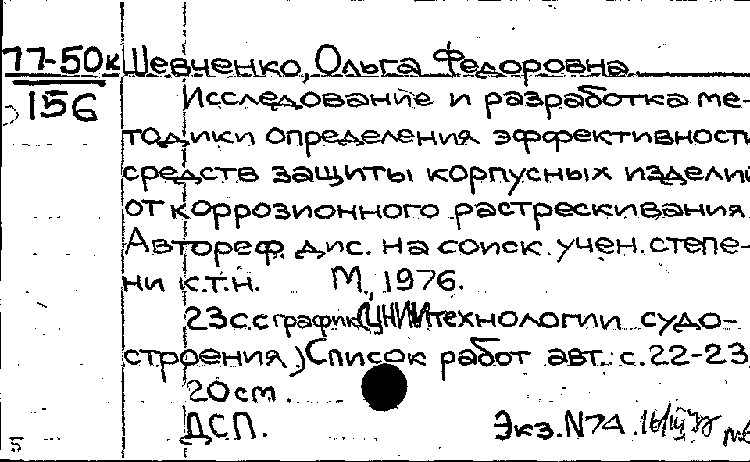 77-50к Шевченко, Ольга Федоровна
156 Исследование и разработка ме-
тодики определения эффективност
средств защиты корпусных издели
от коррозионного растрескивания
Автореф. дис. на соиск. учен. степе-
ни к.т.н. М., 1976.
23с.с график(ЦНИИтехнологии судо-
строения) Список работ авт.: с.22-23
20см.
ДСП. Экз.N74.
5